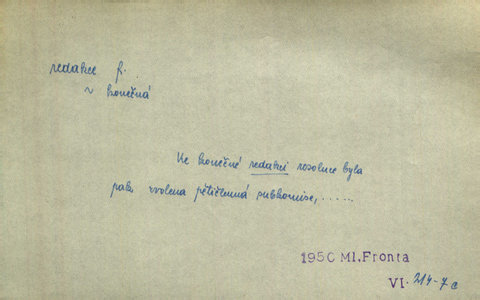 redakce f.
v konečná
Ke konečné redakci resoluce byla
pak zvolena pětičlenná subkomise, ......
1950 Ml. Fronta
VI. 214-7c